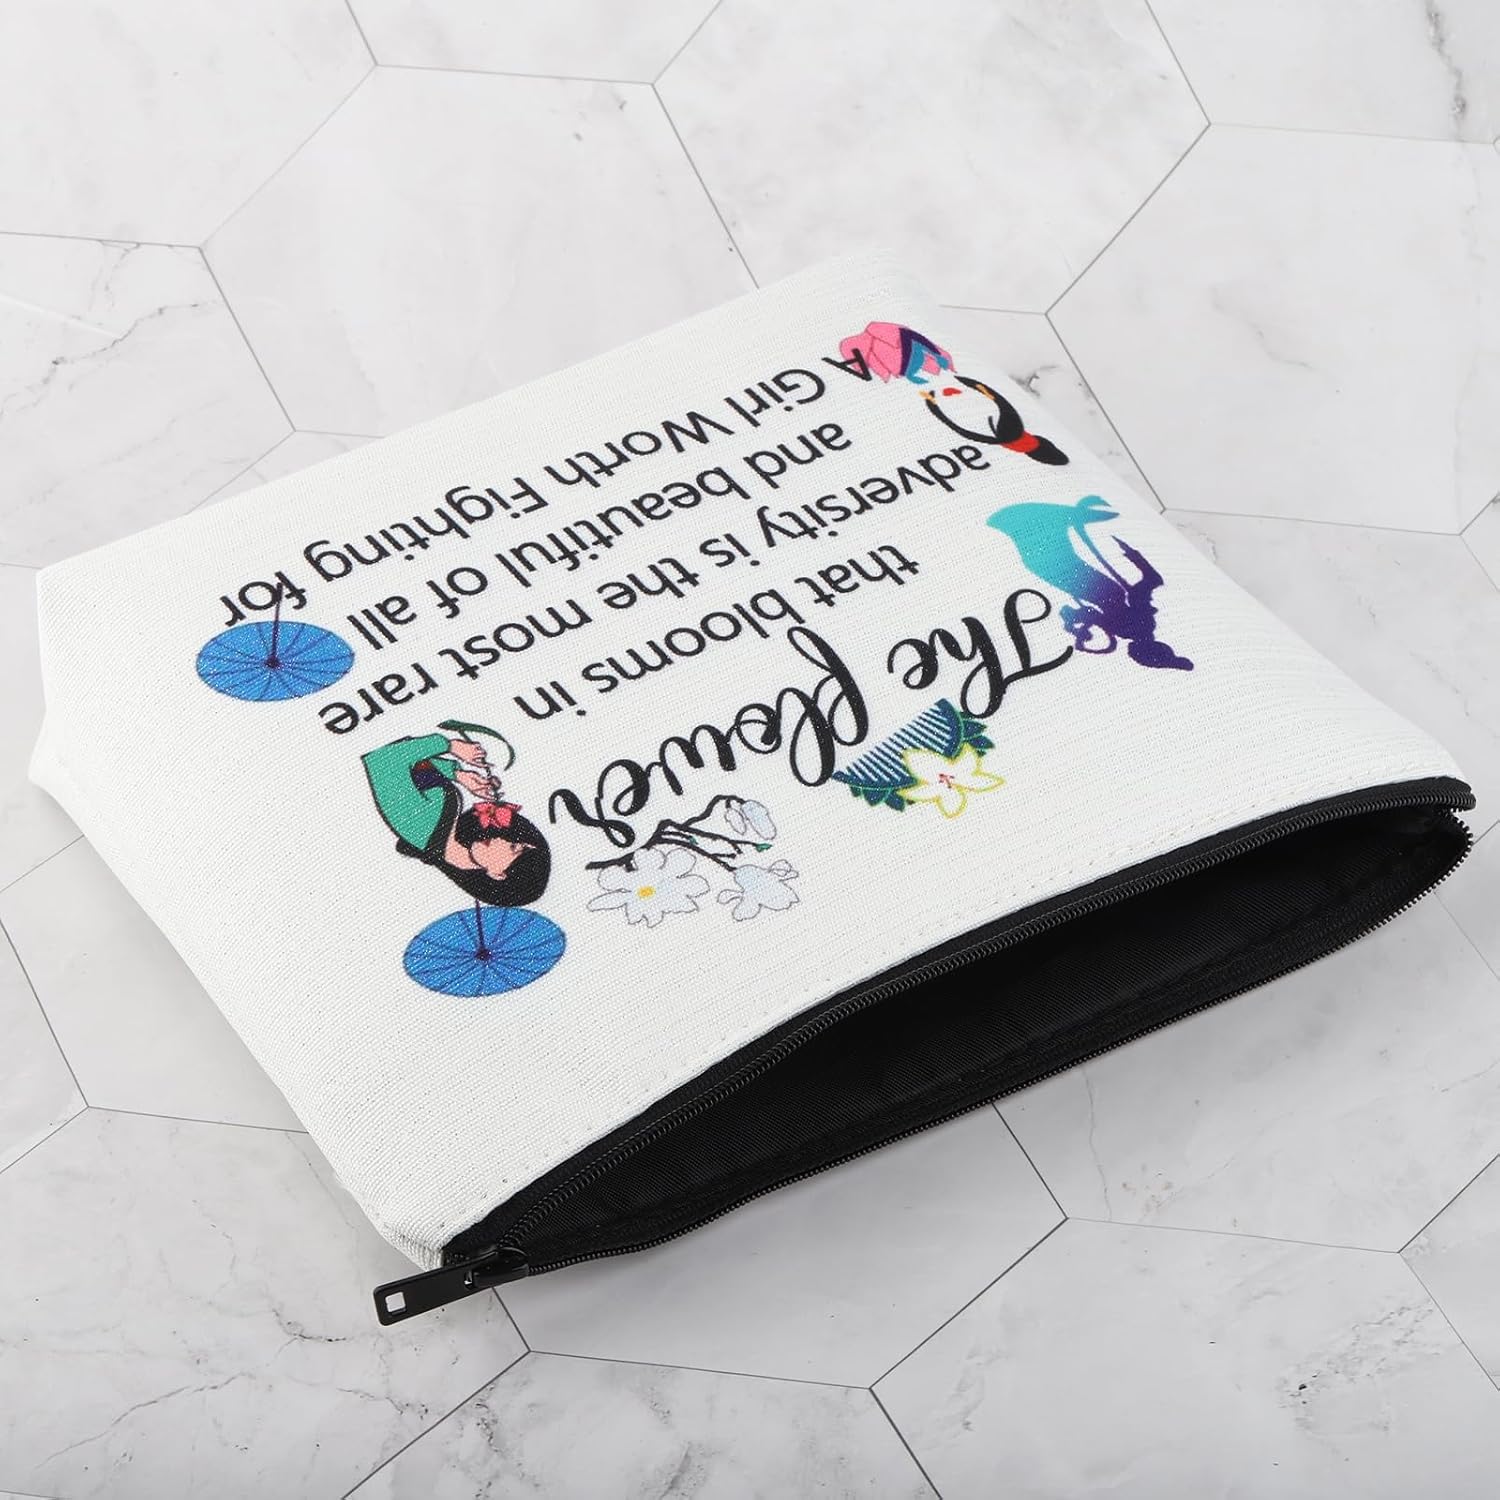 The flower
that blooms in
adversity is the most rare
and beautiful of all
A Girl Worth Fighting for